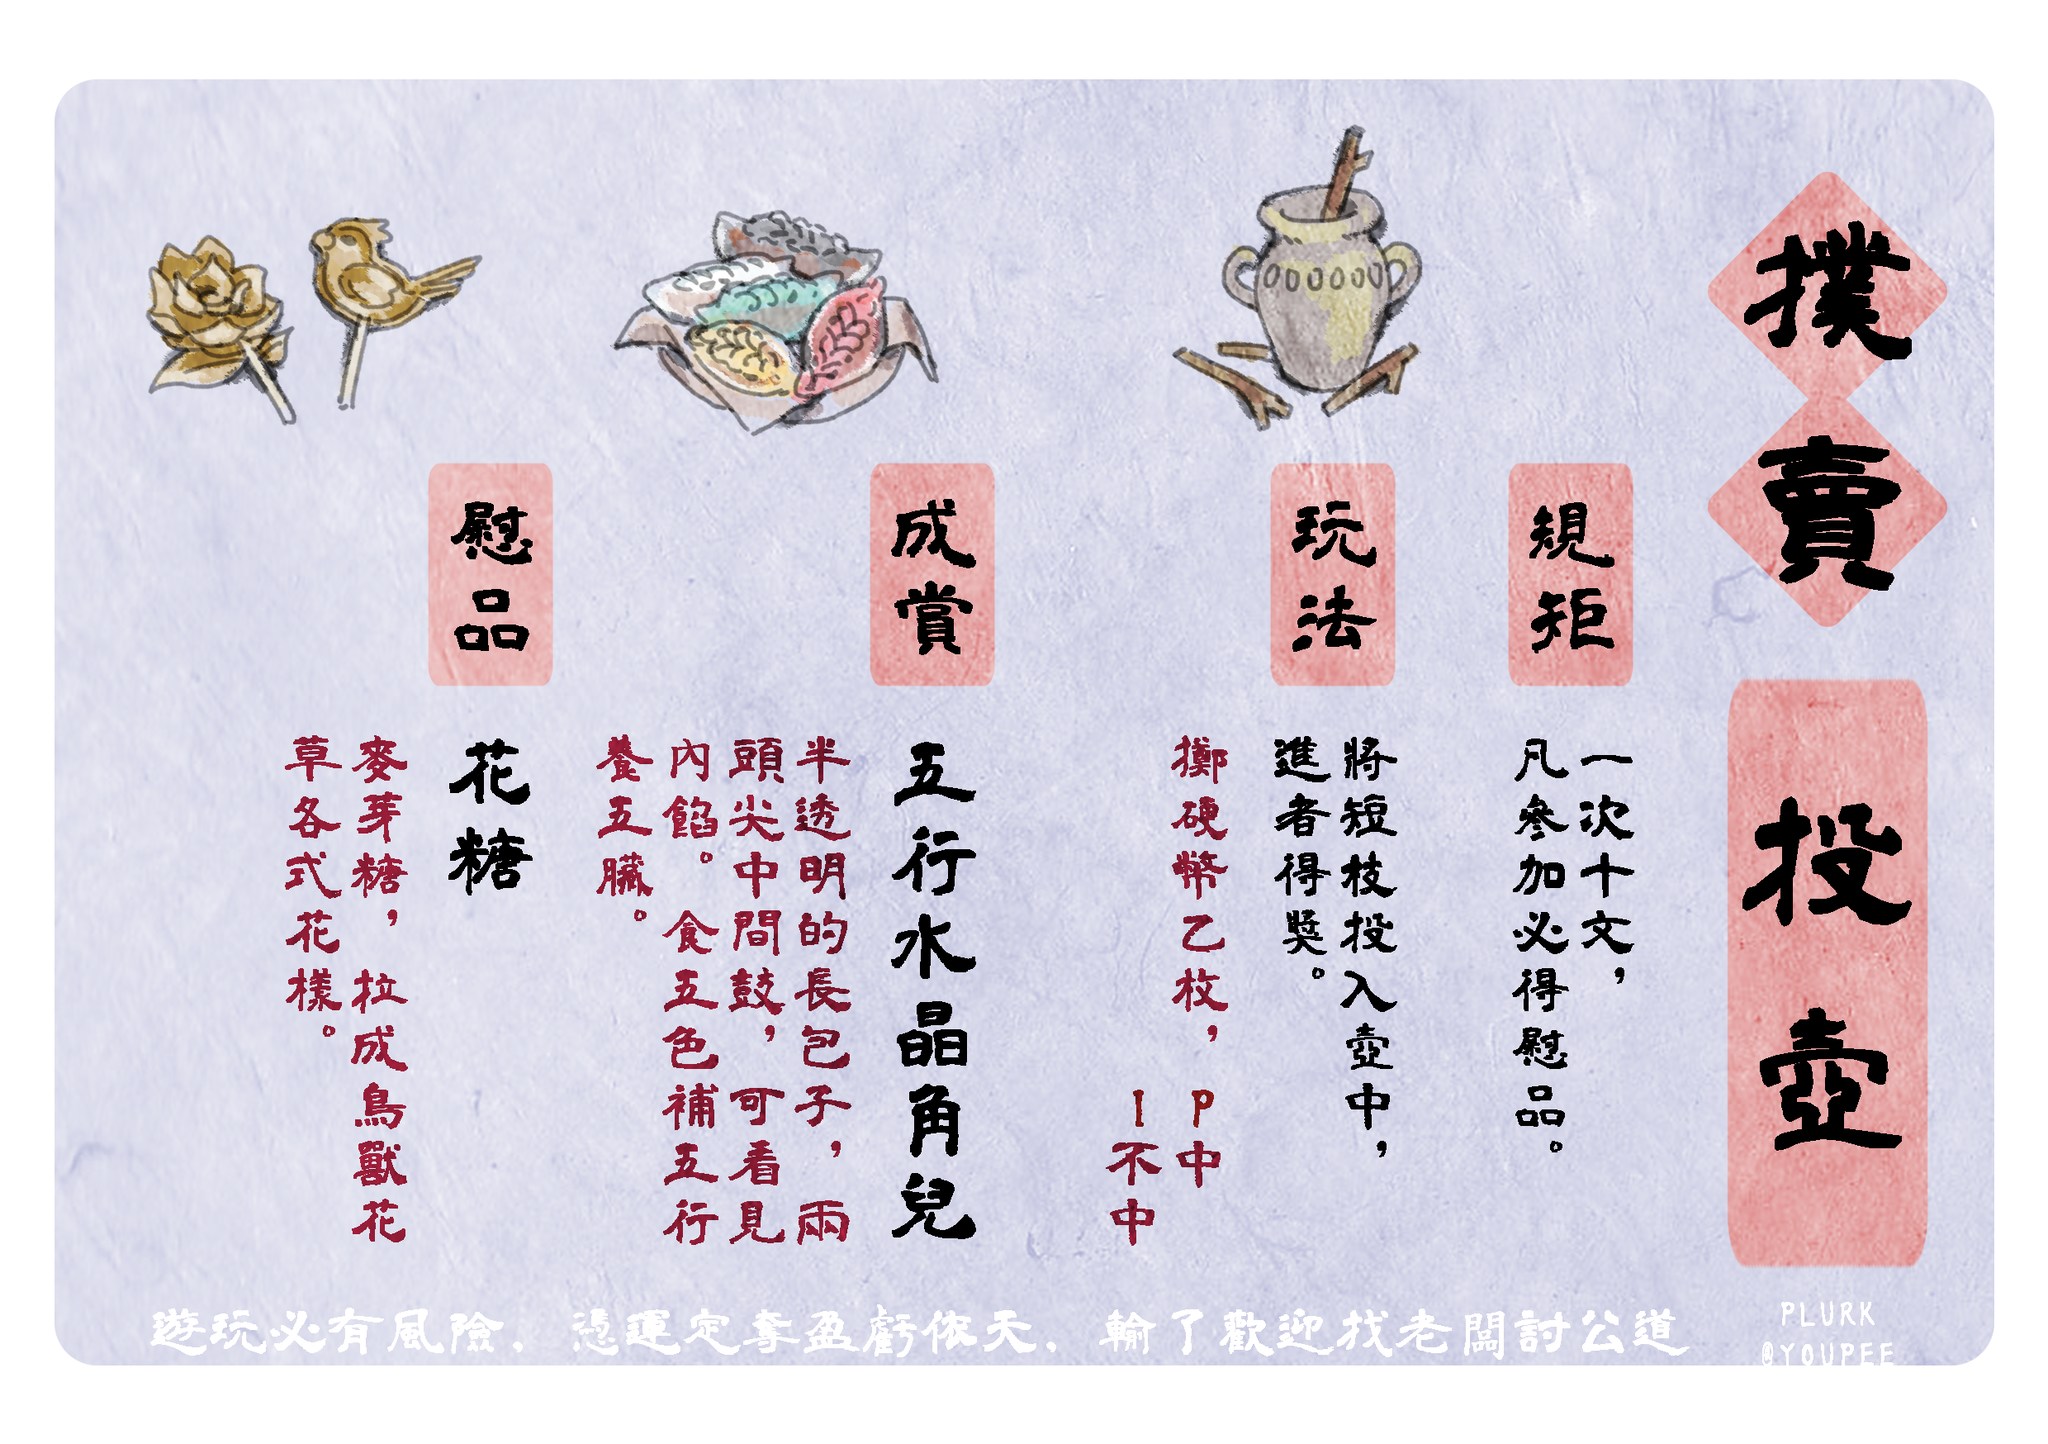 撲賣
投壺
規矩
一次十文，
凡參加必得慰品。
玩法
將短技投入壺中，
進者得獎。
擲硬幣乙枚，
P中
I不中
成賞
五行水晶角兒
半透明的長包子，兩
頭尖中間鼓，可看見
內餡。食五色補五行
養五臟。
慰品
花糖
麥芽糖，拉成鳥獸花
草各式花樣。
遊玩必有風險．憑運定奪盈虧依天．輸了歡迎找老闆討公道
PLURK
@YOUPEE